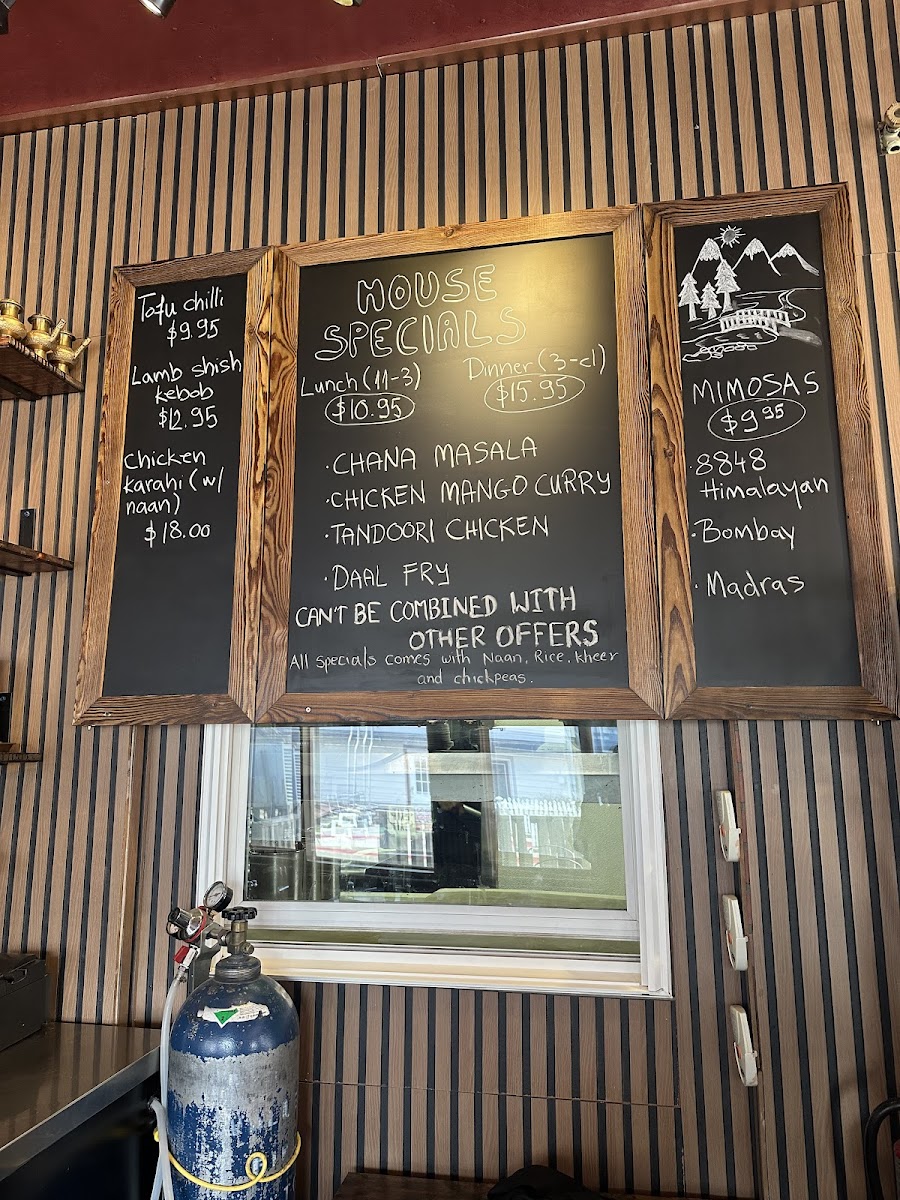 Tofu chilli
$9.95
Lamb shish
kebob
$12.95
Chicken
karahi (w/
naan)
$18.00
HOUSE
SPECIALS
Lunch (11-3)
$10.95
Dinner (3-cl)
$15.95
· CHANA MASALA
· CHICKEN MANGO CURRY
· TANDOORI CHICKEN
· DAAL FRY
CAN'T BE COMBINED WITH
OTHER OFFERS
All specials comes with Naan, Rice, kheer
and chickpeas.
MIMOSAS
$9.95
· 8848
Himalayan
· Bombay
· Madras